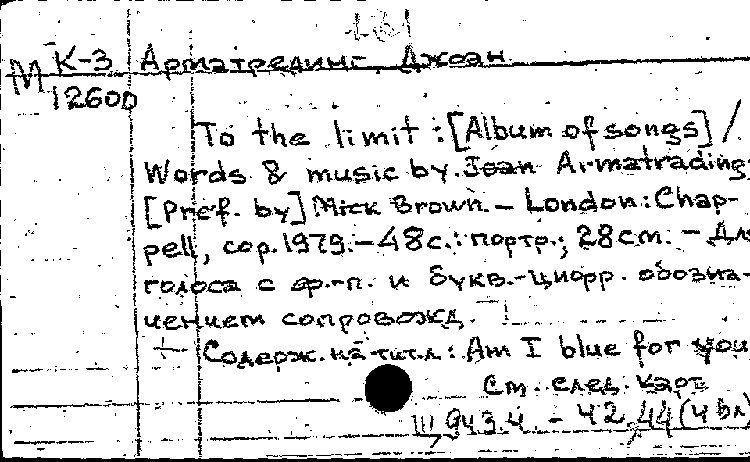 М К-3 Арматрединг, Джоан
12600
To the limit : [Album of songs] /
Words & music by Joan Armatrading;
[Pref. by] Mick Brown. – London : Chap-
pell, cop. 1979. – 48 с. : портр.; 28 см. – Для
голоса с ф.-п. и букв.-цифр. обозна-
чением сопровожд.
Содерж. на тит.л : Am I blue for you
См. след. карт
III 943.4. – 42 44 (4 вл)